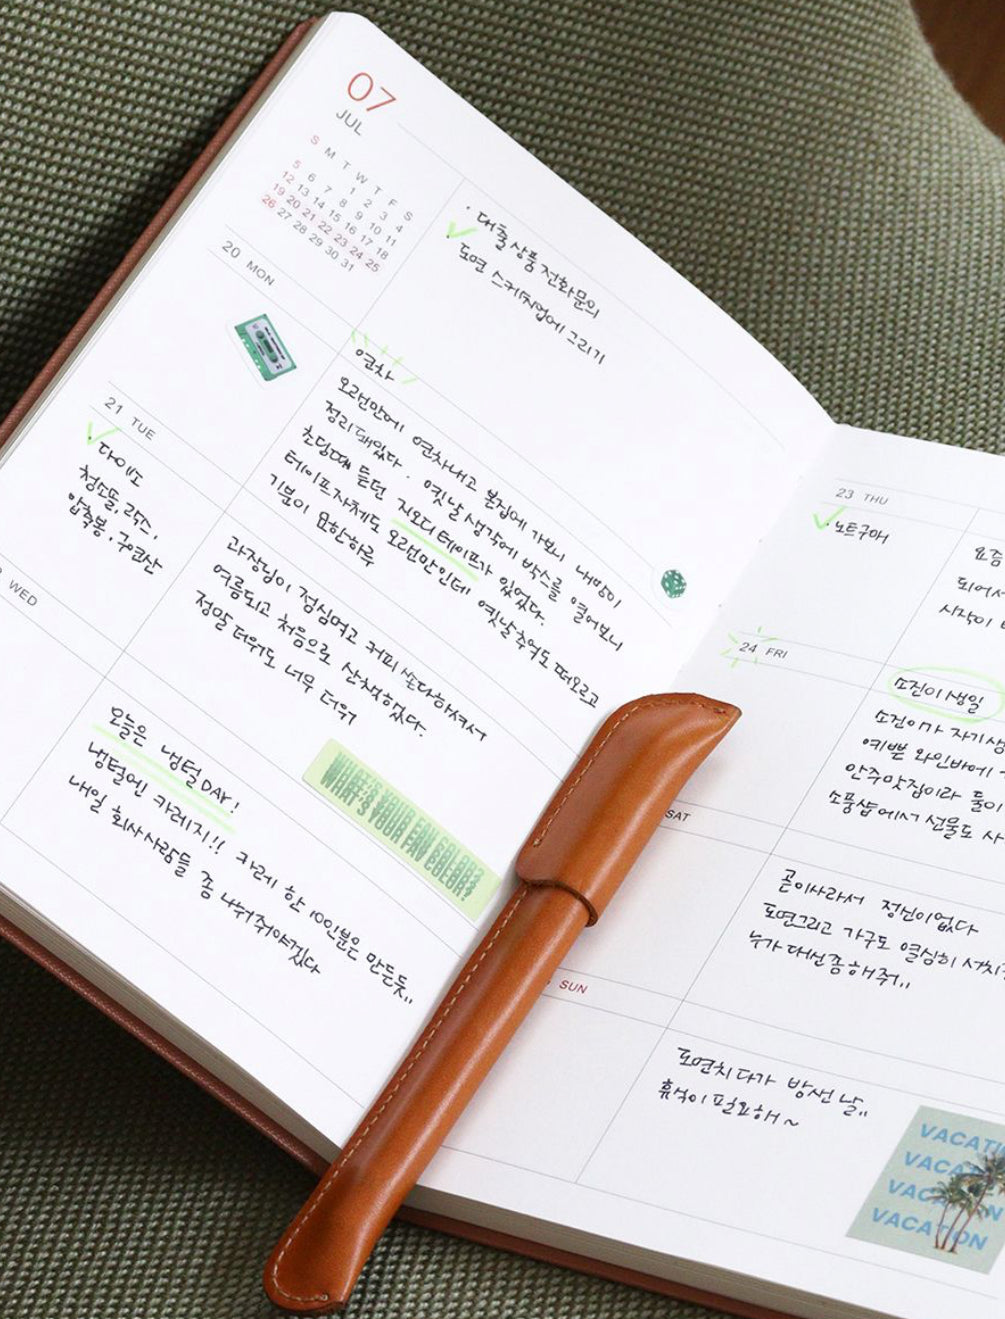 07
JUL
S M T W T F S
1 2 3 4
5 6 7 8 9 10 11
12 13 14 15 16 17 18
19 20 21 22 23 24 25
26 27 28 29 30 31
· 대출상품 전화문의
· 도면 스케치업에 그리기
20 MON
연차
오랜만에 연차내고 본집에 가보니 내방이
정리돼있다. 옛날 생각에 박스를 열어보니
초딩때 듣던 라디오테이프가 있었다.
테이프자체도 오랜만인데 옛날 추억도 떠오르고
기분이 묘한하루
21 TUE
· 다이소
청소돌,
압축봉, 구연산
과장님이 점심먹고 커피 쏜다하셔서
여름되고 처음으로 산책하였다.
정말 더워도 너무 더워
WED
오늘은 냉털DAY!
냉털엔 카레지!! 카레 한 100인분은 만든듯..
내일 회사사람들 좀 나눠줘야겠다
WHAT'S YOUR FAV COLOR?
WHAT'S YOUR FAV COLOR?
23 THU
· 노트구매
요즘
되어서
시작이
24 FRI
소진이생일
소진이가 자기생
예쁜 와인바에서
안주맛집이라 둘이
소품샵에서 선물도 사
SAT
곧이사라서 정신이없다
도면그리고 가구도 열심히 서치
누가대신좀해줘..
SUN
도면치다가 밤샌 날..
휴식이 필요해~
VACATI
VACA
VAC N
VACATION